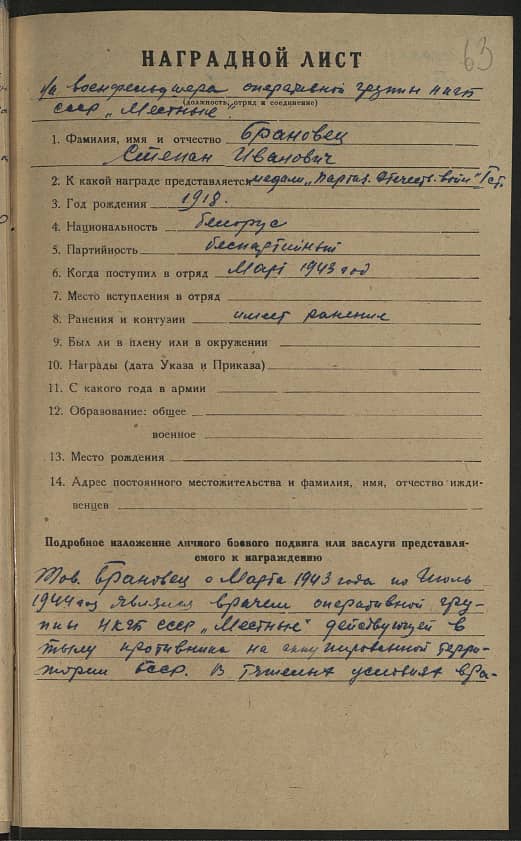 63
НАГРАДНОЙ ЛИСТ
на военфельдшера оперативной группы НКГБ
(должность, отряд и соединение)
СССР „Местные“.
1. Фамилия, имя и отчество Брановец
Степан Иванович
2. К какой награде представляется медали „Партиз. Отечеств. войны“ I ст.
3. Год рождения 1918.
4. Национальность белорус
5. Партийность беспартийный
6. Когда поступил в отряд Март 1943 год
7. Место вступления в отряд
8. Ранения и контузии имеет ранение
9. Был ли в плену или в окружении
10. Награды (дата Указа и Приказа)
11. С какого года в армии
12. Образование: общее
военное
13. Место рождения
14. Адрес постоянного местожительства и фамилия, имя, отчество ижди-
венцев
Подробное изложение личного боевого подвига или заслуги представля-
емого к награждению
Тов. Брановец с Марта 1943 года по Июль
1944 год являлся врачем оперативной гру-
ппы НКГБ СССР „Местные“ действующей в
тылу противника на оккупированной терри-
тории БССР. В тяжелых условиях вра-